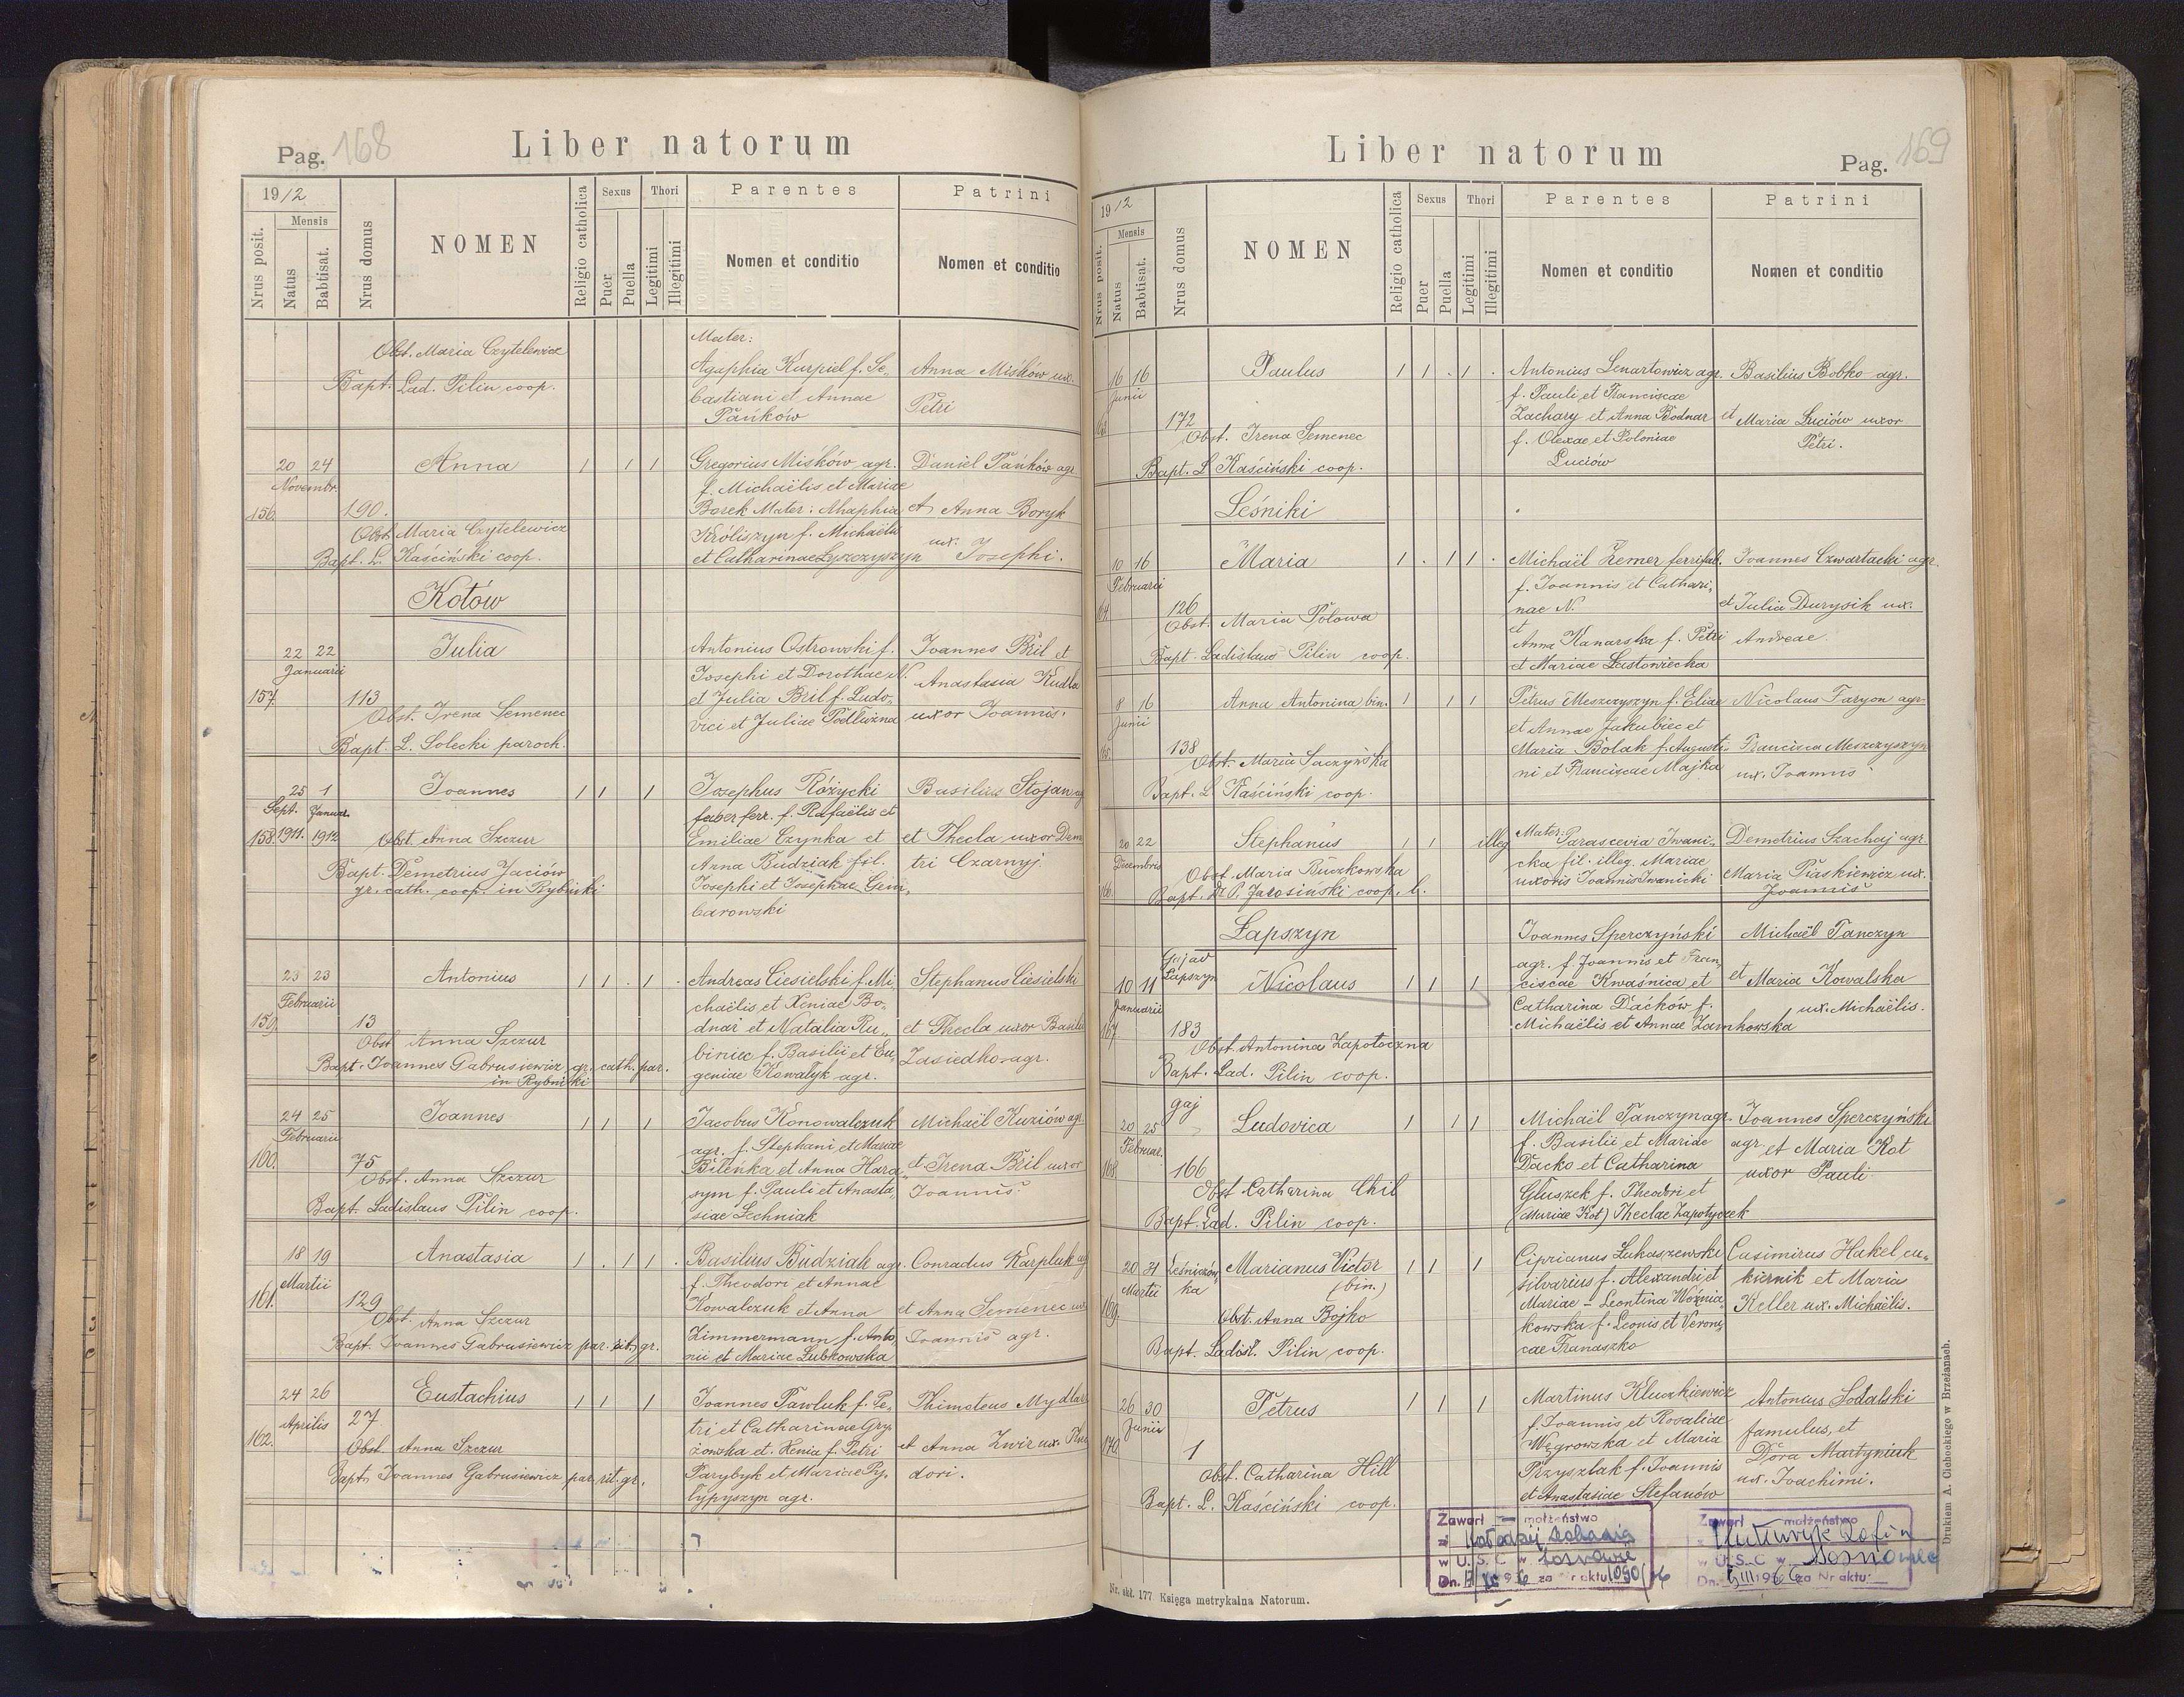 Pag. 168
Liber natorum
1912
Mensis
Nrus posit.
Natus
Babtisat.
Nrus domus
NOMEN
Religio catholica
Sexus
Puer
Puella
Thori
Legitimi
Illegitimi
Parentes
Nomen et conditio
Patrini
Nomen et conditio
Obst. Maria Czytelewicz
Bapt. Lad. Pilin coop.
Mater:
Agaphia Kurpiel f. Se-
bastiani et Annae
Pańków
Anna Miśków ux.
Petri
20 24
Novembr.
156.
190.
Anna
1 1 1
Obst. Maria Czytelewicz
Bapt. L. Kaściński coop.
Gregorius Miśków agr.
f. Michaëlis et Mariae
Borek Mater: Ahaphia
Króliszyn f. Michaëlis
et Catharinae Łyszczyszyn
Daniel Pańków agr
et Anna Boryk
ux. Josephi.
Kotów
22 22
Januarii
157.
113
Julia
Obst. Irena Semenec
Bapt. L. Solecki paroch.
Antonius Ostrowski f.
Josephi et Dorotheae N.
et Julia Bril f. Ludo-
vici et Juliae Podłużna
Joannes Bril et
Anastasia Kudła
uxor Joannis.
25 1
Sept. Januar.
158. 1911. 1912
Joannes
1 1 1
Obst. Anna Szczur
Bapt. Demetrius Jaciów
gr. cath. coop. in Rybniki
Josephus Różycki
faber ferr. f. Rafaëlis et
Emiliae Czynka et
Anna Budziak fil.
Josephi et Josephae Gem-
barowski
Basilius Stojan
et Thecla uxor Deme
tri Czarnyj
23 23
Februarii
159.
13
Antonius
1 1 . 1 .
Obst Anna Szczur
Bapt. Joannes Gabrusiewicz gr. cath. par.
in Rybniki
Andreas Ciesielski f. Mi-
chaëlis et Xeniae Bo-
dnar et Natalia Ru-
biniec f. Basilii et Eu-
geniae Kowalyk agr.
Stephanus Ciesielski
et Thecla uxor Basilii
Zasiedko agr.
24 25
Februarii
160.
75
Joannes
1 1 1
Obst. Anna Szczur
Bapt. Ladislaus Pilin coop.
Jacobus Konowalczuk
agr. f. Stephani et Mariae
Bileńka et Anna Hara-
sym f. Pauli et Anasta-
siae Lechniak
Michaël Kuziów agr.
et Irena Bril uxor
Joannis.
18 19
Martii
161.
129
Anastasia
1 . 1 1 .
Obst. Anna Szczur
Bapt. Joannes Gabrusiewicz par. rit. gr.
Basilius Budziak agr.
f. Theodori et Annae
Kowalczuk et Anna
Zimmermann f. Anto-
nii et Mariae Lubkowska
Conradus Karpluk ag
et Anna Semenec ux.
Joannis agr.
24 26
Aprilis
162.
27
Eustachius
1 1 1
Obst. Anna Szczur
Bapt. Joannes Gabrusiewicz par. rit. gr.
Joannes Pawluk f. Pe-
tri et Catharinae Gry-
zowska et Xenia f. Petri
Parybyk et Mariae Py-
lypyszyn agr.
Thimoteus Mydlar
et Anna Zwir ux. Theo
dori.
Liber natorum
Pag. 169
1912
Mensis
Nrus posit.
Natus
Babtisat.
Nrus domus
NOMEN
Religio catholica
Sexus
Puer
Puella
Thori
Legitimi
Illegitimi
Parentes
Nomen et conditio
Patrini
Nomen et conditio
16 16
Junii
163
172
Paulus
1 1 . 1 .
Obst. Irena Semenec
Bapt. L Kaściński coop.
Antonius Lenartowicz agr.
f. Pauli et Franciscae
Zachary et Anna Bodnar
f. Olexae et Poloniae
Luciów
Basilius Bobko agr.
et Maria Luciów uxor
Petri.
Leśniki
10 16
Februarii
164.
126
Maria
1 . 1 1 .
Obst. Maria Polowa
Bapt. Ladislaus Pilin coop.
Michaël Zemer ferrifab.
f. Joannis et Cathari-
nae N.
et
Anna Kanarska f. Petri
et Mariae Lastowiecka
Joannes Czwartacki agr.
et Julia Durysik ux.
Andreae.
8 16
Junii
165.
138
Anna Antonina, bin.
1 1 1
Obst. Maria Saczyńska
Bapt. L Kaściński coop.
Petrus Meszczyszyn f. Eliae
et Annae Jakubiec et
Maria Bolak f. Augusti-
ni et Franciscae Majka
Nicolaus Faryon agr
Francisca Meszczyszyn
ux. Joannis
20 22
Decembris
166.
Stephanus
1 1 illeg
Obst. Maria Buczkowska
Bapt. Dr P. Jarosiński coop. b.
Mater: Parascevia Iwani-
cka fil. illeg. Mariae
uxoris Joannis Iwanicki
Demetrius Szachaj agr.
Maria Piaskiewicz ux.
Joannis
Łapszyn
10 11
Januarii
167
Gaj ad
Łapszyn
183
Nicolaus
1 1 1
Obst. Antonina Zapotoczna
Bapt. Lad. Pilin coop.
Joannes Sperczyński
agr. f. Joannis et Fran-
ciscae Kwaśnica et
Catharina Daćków f.
Michaëlis et Annae Zamkowska
Michaël Tanczyn
et Maria Kowalska
ux. Michaëlis.
20 25
Februar.
168.
Gaj
166
Ludovica
1 1 1
Obst Catharina Chil
Bapt. Lad. Pilin coop.
Michaël Tanczyn agr.
f. Basilii et Mariae
Dacko et Catharina
Głuszek f. Theodori et
(Mariae Kot) Theclae Zapotyczek
Joannes Sperczyński
agr et Maria Kot
uxor Pauli
20 31
Martii
169.
Leśniczów-
ka
Marianus Victor
(bin.)
1 1 1
Obst. Anna Bojko
Bapt. Ladisl. Pilin coop.
Ciprianus Łukaszewski
silvarius f. Alexandri et
Mariae - Leontina Woźnia-
kowska f. Leonis et Veroni-
cae Franaszko
Casimirus Hakel cu-
kiernik et Maria
Keller ux. Michaëlis.
26 30
Junii
170.
1
Petrus
1 1 1
Obst. Catharina Hill
Bapt. L. Kaściński coop.
Martinus Kluczkiewicz
f. Joannis et Rosaliae
Węgrowska et Maria
Przyszlak f. Joannis
et Anastasiae Stefanów
Antonius Sodalski
famulus, et
Dora Martyniuk
ux. Joachimi.
Zawarł małżeństwo
z Kołodziej
w U. S. C. w
Dn. 19 6 za nr aktu 1090/
Zawarł małżeństwo
z
w U. S. C. w Sosnowiec
Dn. III 1966 za Nr aktu
Nr. skł. 177 Księga metrykalna Natorum.
Drukiem A. Cichockiego w Brzeżanach.